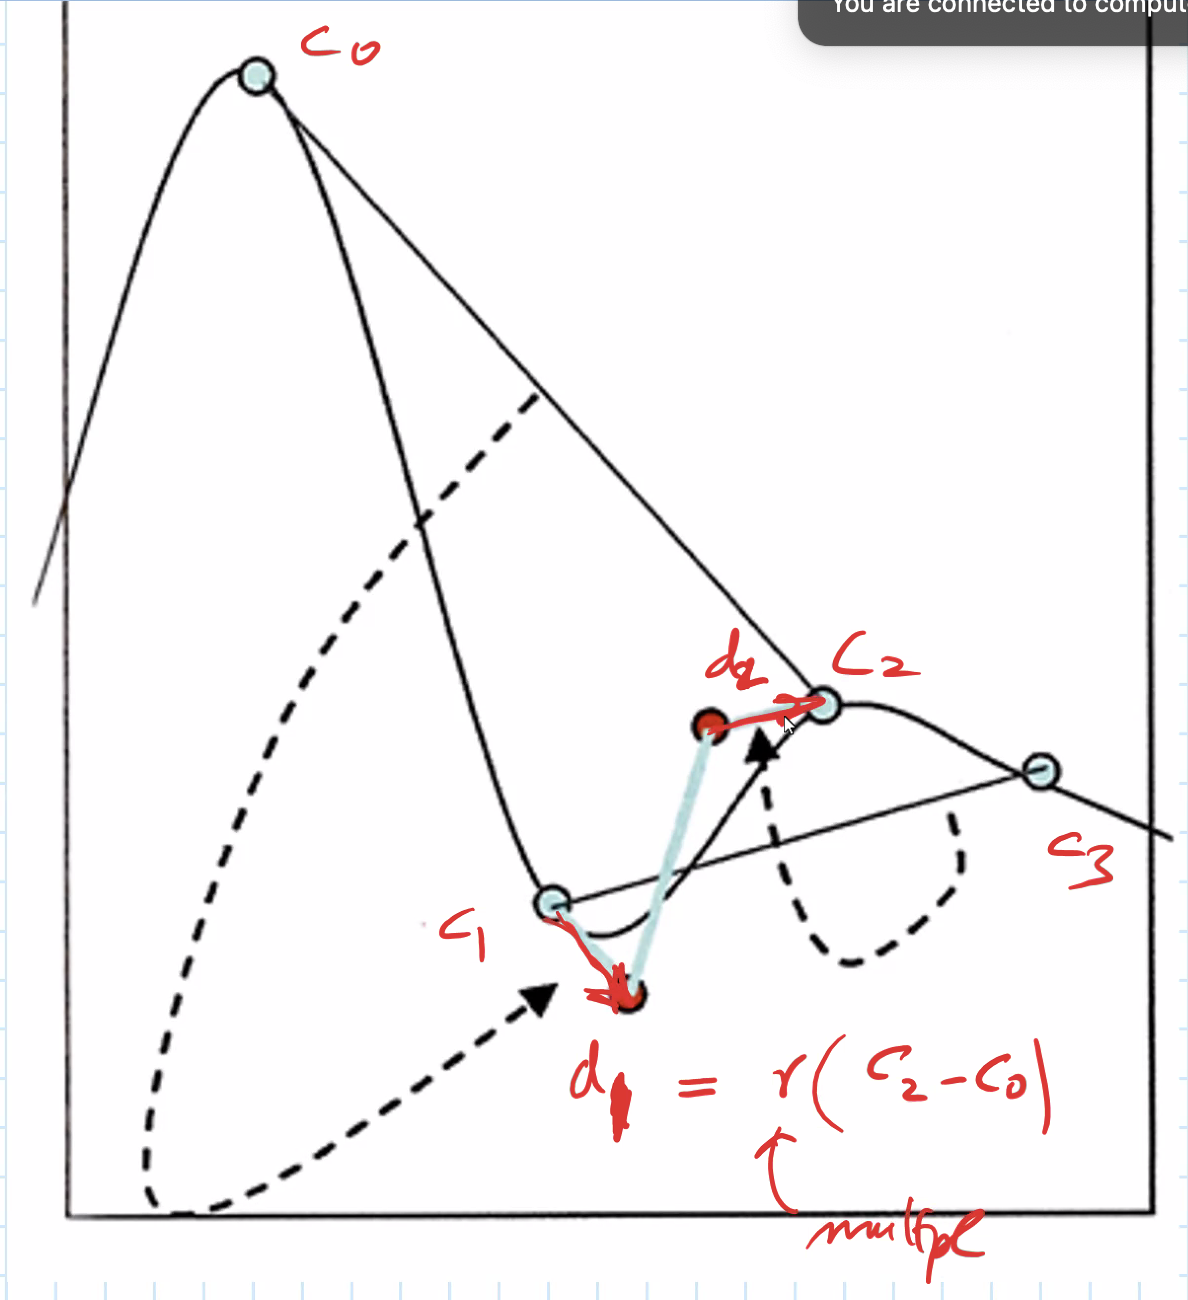 You are connected to comput
C0
d2
C2
C3
C1
d1 = r(C2-C0)
multiple